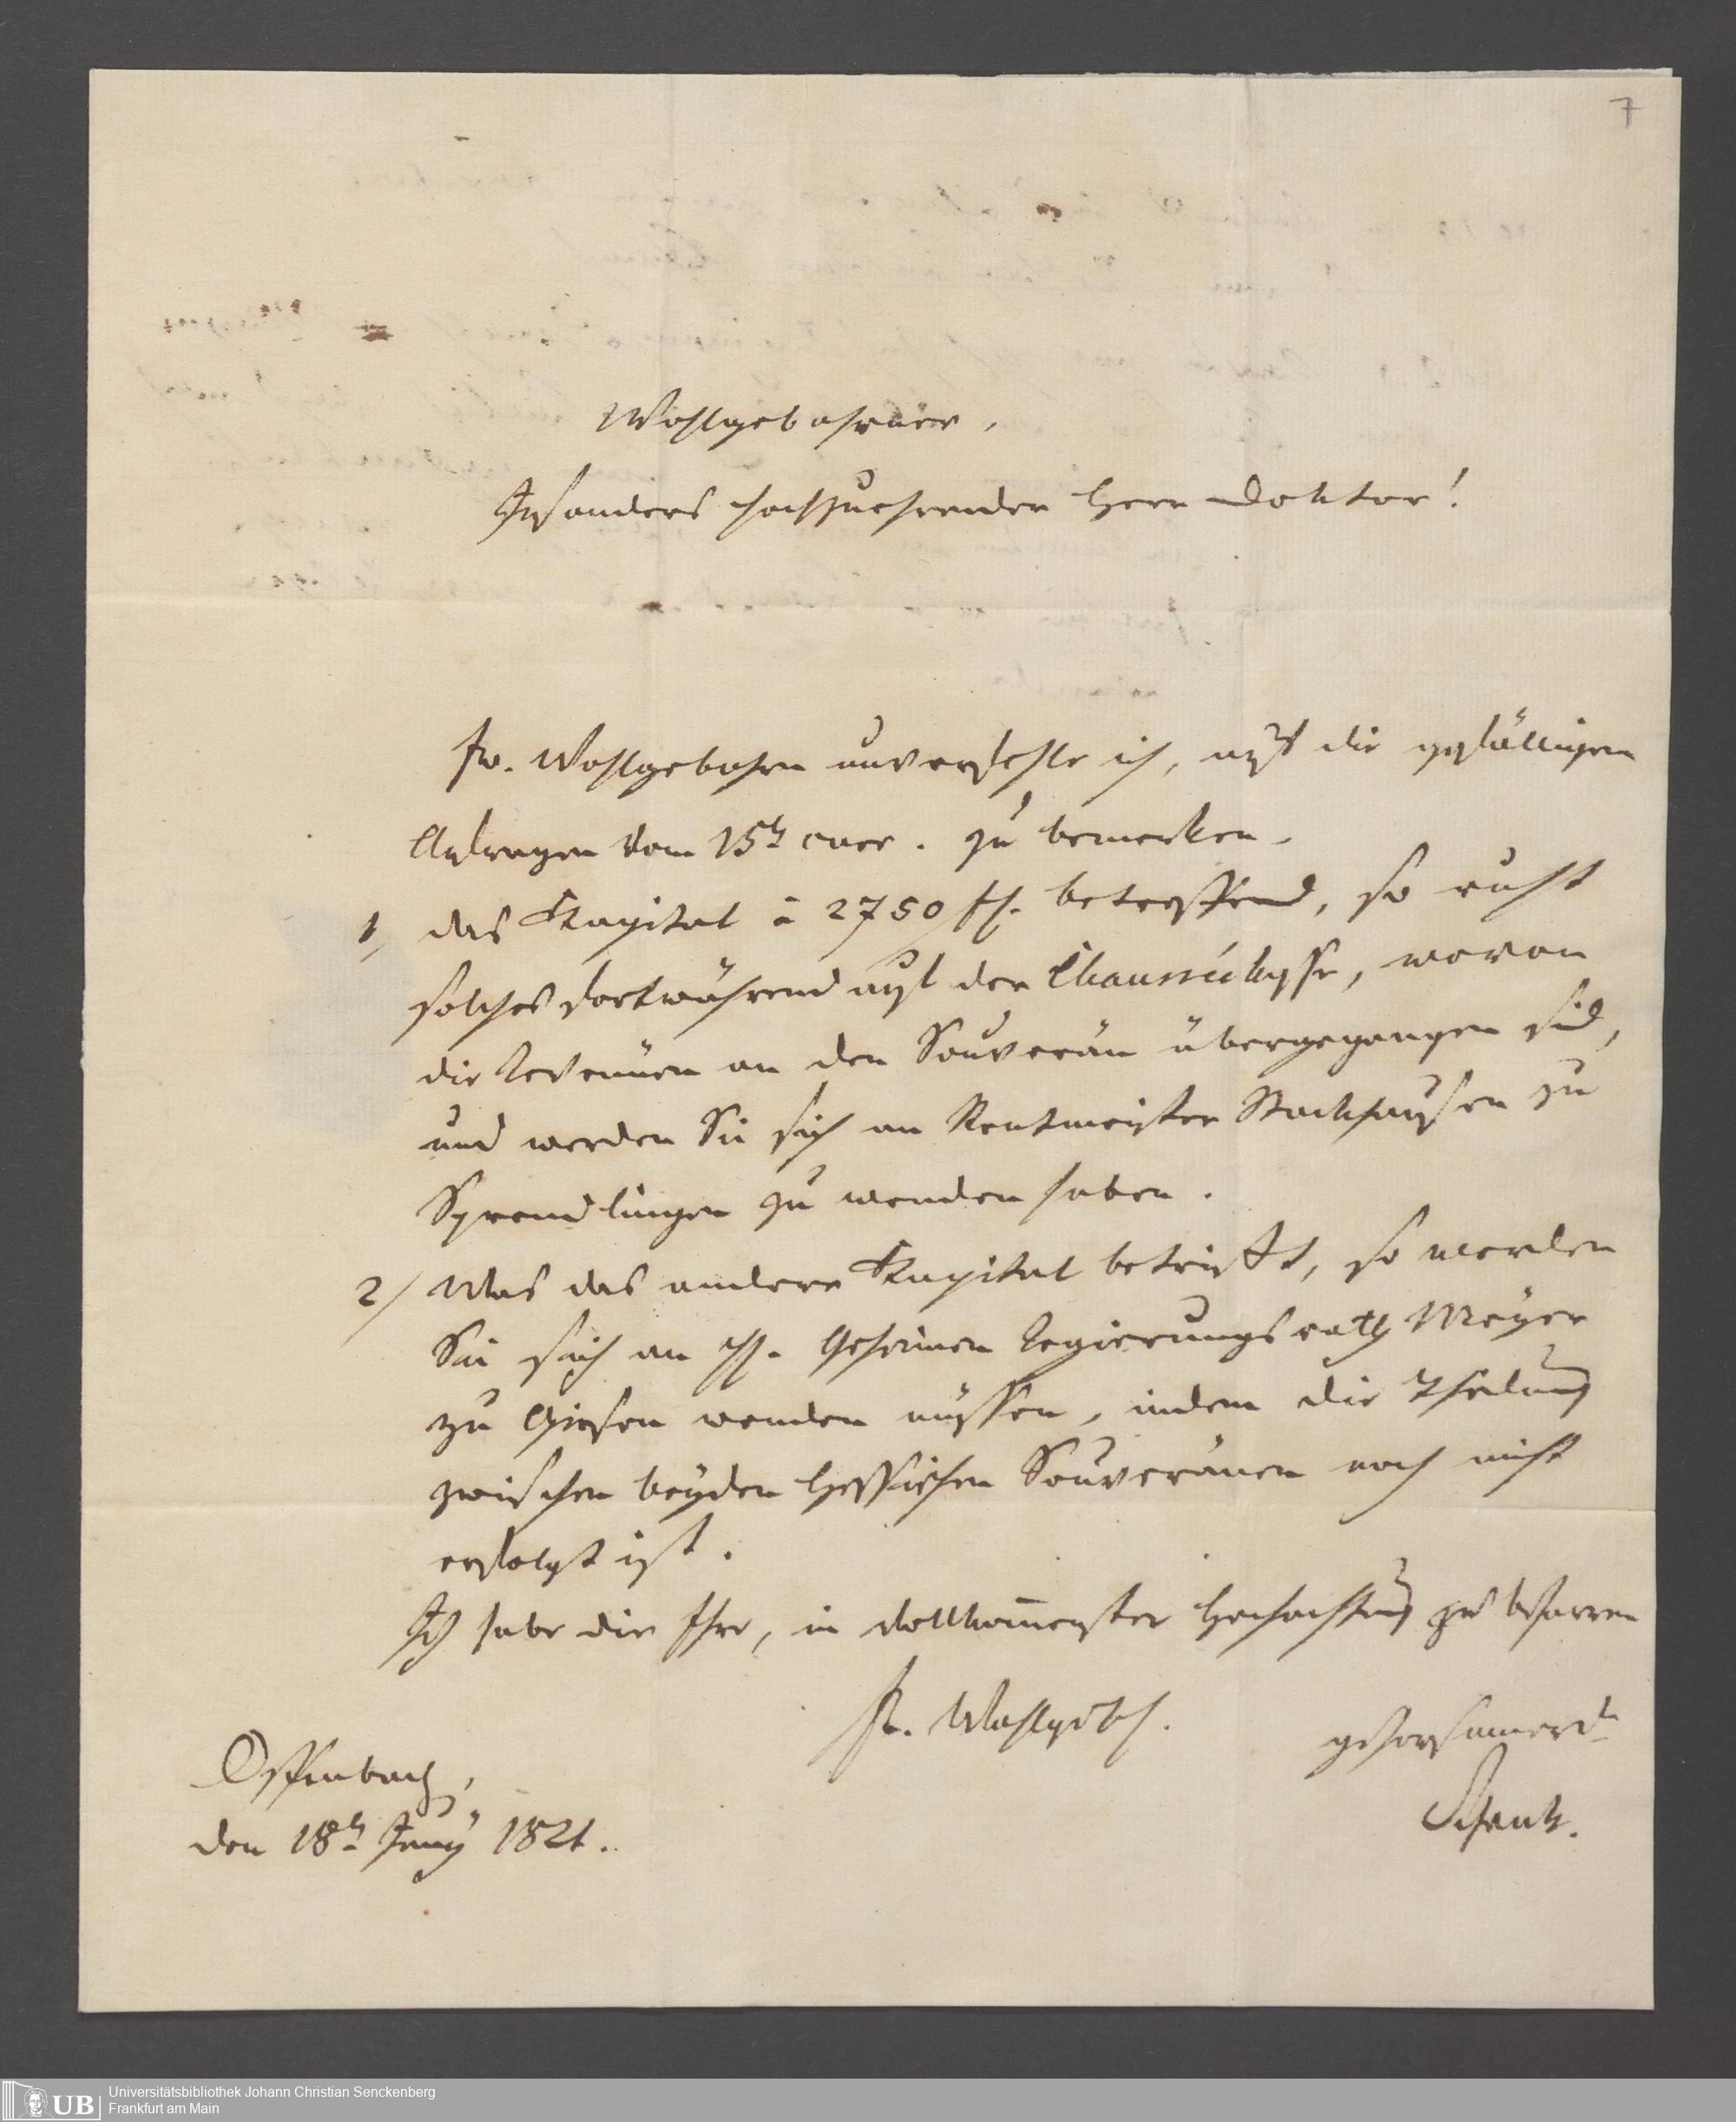 7
Wohlgebohrner,
Insonders hochzuehrender Herr Doktor!
Ew. Wohlgebohrn unverfehle ich, auf die gefälligen
Anfragen vom 15t cur. zu bemerken.
1, das Kapital à 2750 fl. betreffend, so ruht
solches fortwährend auf der Chausséekasse, wovon
die Revenüen an den Souverän übergegangen sind,
und werden Sie sich an Rentmeister Stockhausen zu
Sprendlingen zu wenden haben.
2/ Was das andere Kapital betrifft, so werden
Sie sich an H. Geheimen Regierungsrath Meyer
zu Giesen wenden müssen, indem die Theilung
zwischen beyden Hessischen Souveränen noch nicht
erfolgt ist.
Ich habe die Ehre, in vollkom̅enster Hochachtung zu beharren
Ew. Wohlgeb.
gehorsamer
Schenk.
Offenbach,
den 18t Juny 1821.
UB
Universitätsbibliothek Johann Christian Senckenberg
Frankfurt am Main